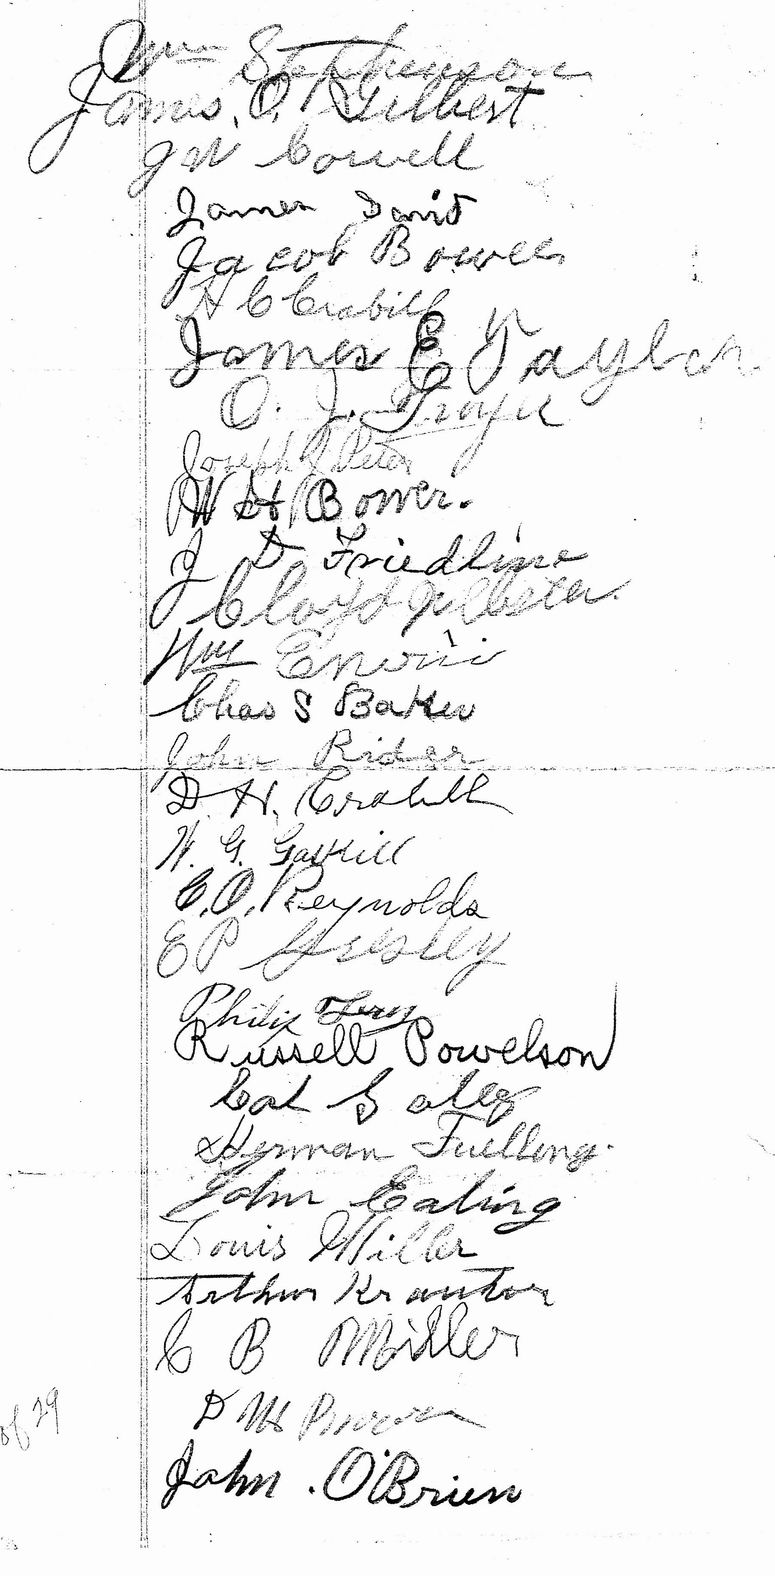 Wm Stephenson
James. O. Gilbert
J W Cowell
James David
Jacob Bower
H C Crabill
James E Taylor
O. J. Troyer
Joseph J Peter
W H Bower.
J D Friedline
Cloyd
Wm Erwin
Chas S Baker
John Rider
D. H. Crabill
W. G. Gaskill
C. O. Reynolds
E P
Philip
Russell Powelson
Cal
Herman Fuelling.
John Ealing
Louis Miller
Arthur
C B Miller
D W
John. O'Brien
of 29